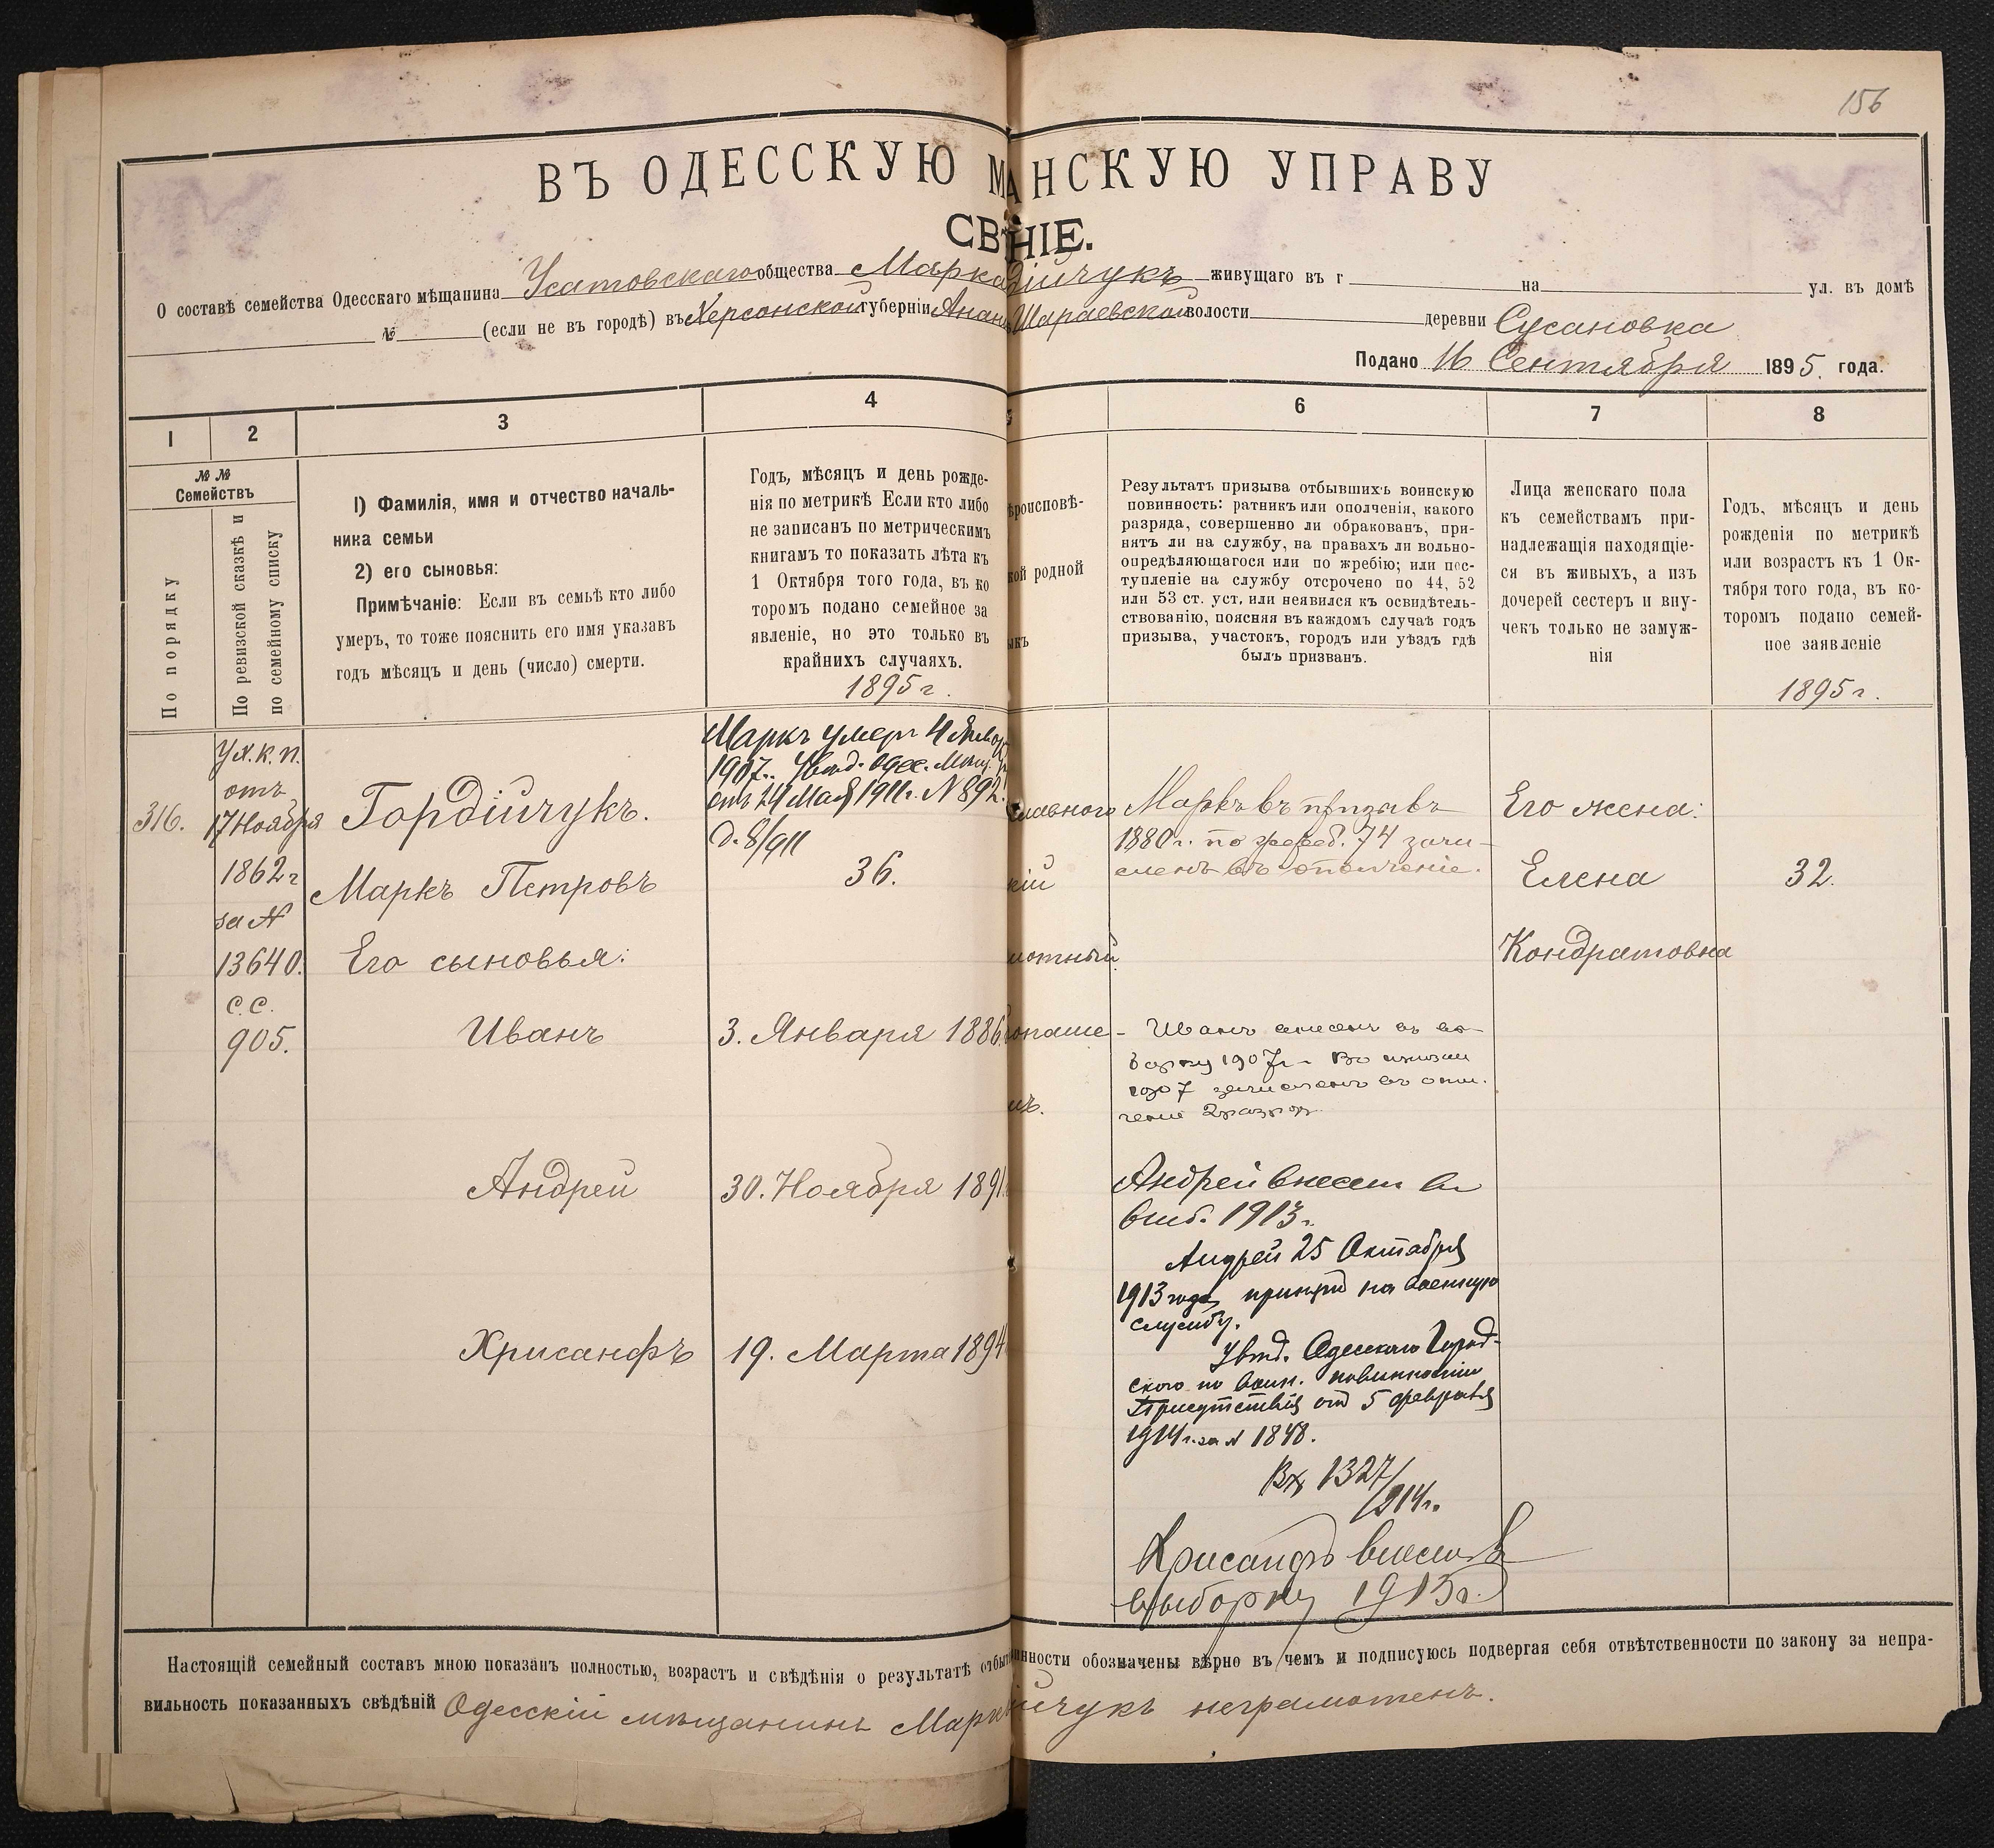 156
ВЪ ОДЕССКУЮ МАНСКУЮ УПРАВУ
СВѢНІЕ.
О составѣ семейства Одесскаго мѣщанина Усатовскаго общества Марка дійчукъ живущаго въ г на ул. въ домѣ
№ (если не въ городѣ) въ Херсонской губерніи Анан Шараевской волости деревни Сусановка
Подано 16 Сентября 1895 года.
1 2 3 4 6 7 8
№№
Семействъ
По порядку
По ревизской сказкѣ и
по семейному списку
1) Фамилія, имя и отчество началь-
ника семьи
2) его сыновья:
Примѣчаніе: Если въ семьѣ кто либо
умеръ, то тоже пояснить его имя указавъ
годъ мѣсяцъ и день (число) смерти.
Годъ, мѣсяцъ и день рожде-
нія по метрикѣ Если кто либо
не записанъ по метрическимъ
книгамъ то показать лѣта къ
1 Октября того года, въ ко
торомъ подано семейное за
явленіе, но это только въ
крайнихъ случаяхъ.
1895 г.
ѣроисповѣ-
кой родной
ыкъ
Результатъ призыва отбывшихъ воинскую
повинность: ратникъ или ополченія, какого
разряда, совершенно ли обракованъ, при-
нятъ ли на службу, на правахъ ли вольно-
опредѣляющагося или по жребію; или пос-
тупленіе на службу отсрочено по 44, 52
или 53 ст. уст. или неявился къ освидѣтель-
ствованію, поясняя въ каждомъ случаѣ годъ
призыва, участокъ, городъ или уѣздъ гдѣ
былъ призванъ.
Лица женскаго пола
къ семействамъ при-
надлежащія находящіе-
ся въ живыхъ, а изъ
дочерей сестеръ и вну-
чекъ только не замуж-
нія
Годъ, мѣсяцъ и день
рожденія по метрикѣ
или возрастъ къ 1 Ок-
тября того года, въ ко-
торомъ подано семей-
ное заявленіе
1895 г.
316.
Ук. к. п.
отъ
17 Ноября
1862 г
за №
13640.
с.с.
905.
Гордійчукъ.
Маркъ Петровъ
Его сыновья:
Иванъ
Андрей
Хрисанфъ
Маркъ умеръ 4 Январ
1907. Увѣд. Одес. Мѣщ. У
отъ 24 Мая 1911 г. № 892.
д. 8/911
36.
3. Января 1886
30. Ноября 1891
19. Марта 1894
славнаго
кій
мотный
опаше-
ъ.
Маркъ въ призывъ
1880 г. по жреб. 74 зачи-
сленъ въ ополченіе.
Иванъ внесенъ въ вы-
борку 1907 г. Въ призыв
1907 зачисленъ въ опол-
ченіе 2 разряд
Андрей внесен въ
выб. 1913 г.
Андрей 25 Октября
1913 года принятъ на военную
службу.
Увѣд. Одесскаго Город-
ского по воин. повинности
Присутствія отъ 5 февраля
1914 г. за № 1848.
Вх 1327/
914 г.
Хрисанфъ внесенъ в
выборку 1915 г.
Его жена:
Елена
Кондратовна
32.
Настоящій семейный составъ мною показанъ полностью, возрастъ и свѣдѣнія о результатѣ отбы инности обозначены вѣрно въ чемъ и подписуюсь подвергая себя отвѣтственности по закону за непра-
вильность показанныхъ свѣдѣній Одесскій мѣщанинъ Маркъ ійчукъ неграмотенъ.